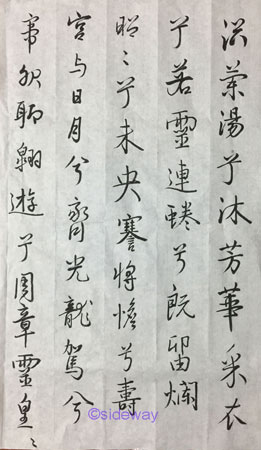 浴蘭湯兮沐芳華采衣
兮若靈連蜷兮既畱爛
昭〻兮未央謇將憺兮壽
宮与日月兮齊光龍駕兮
帝服聊翱遊兮周章靈皇〻
©sideway